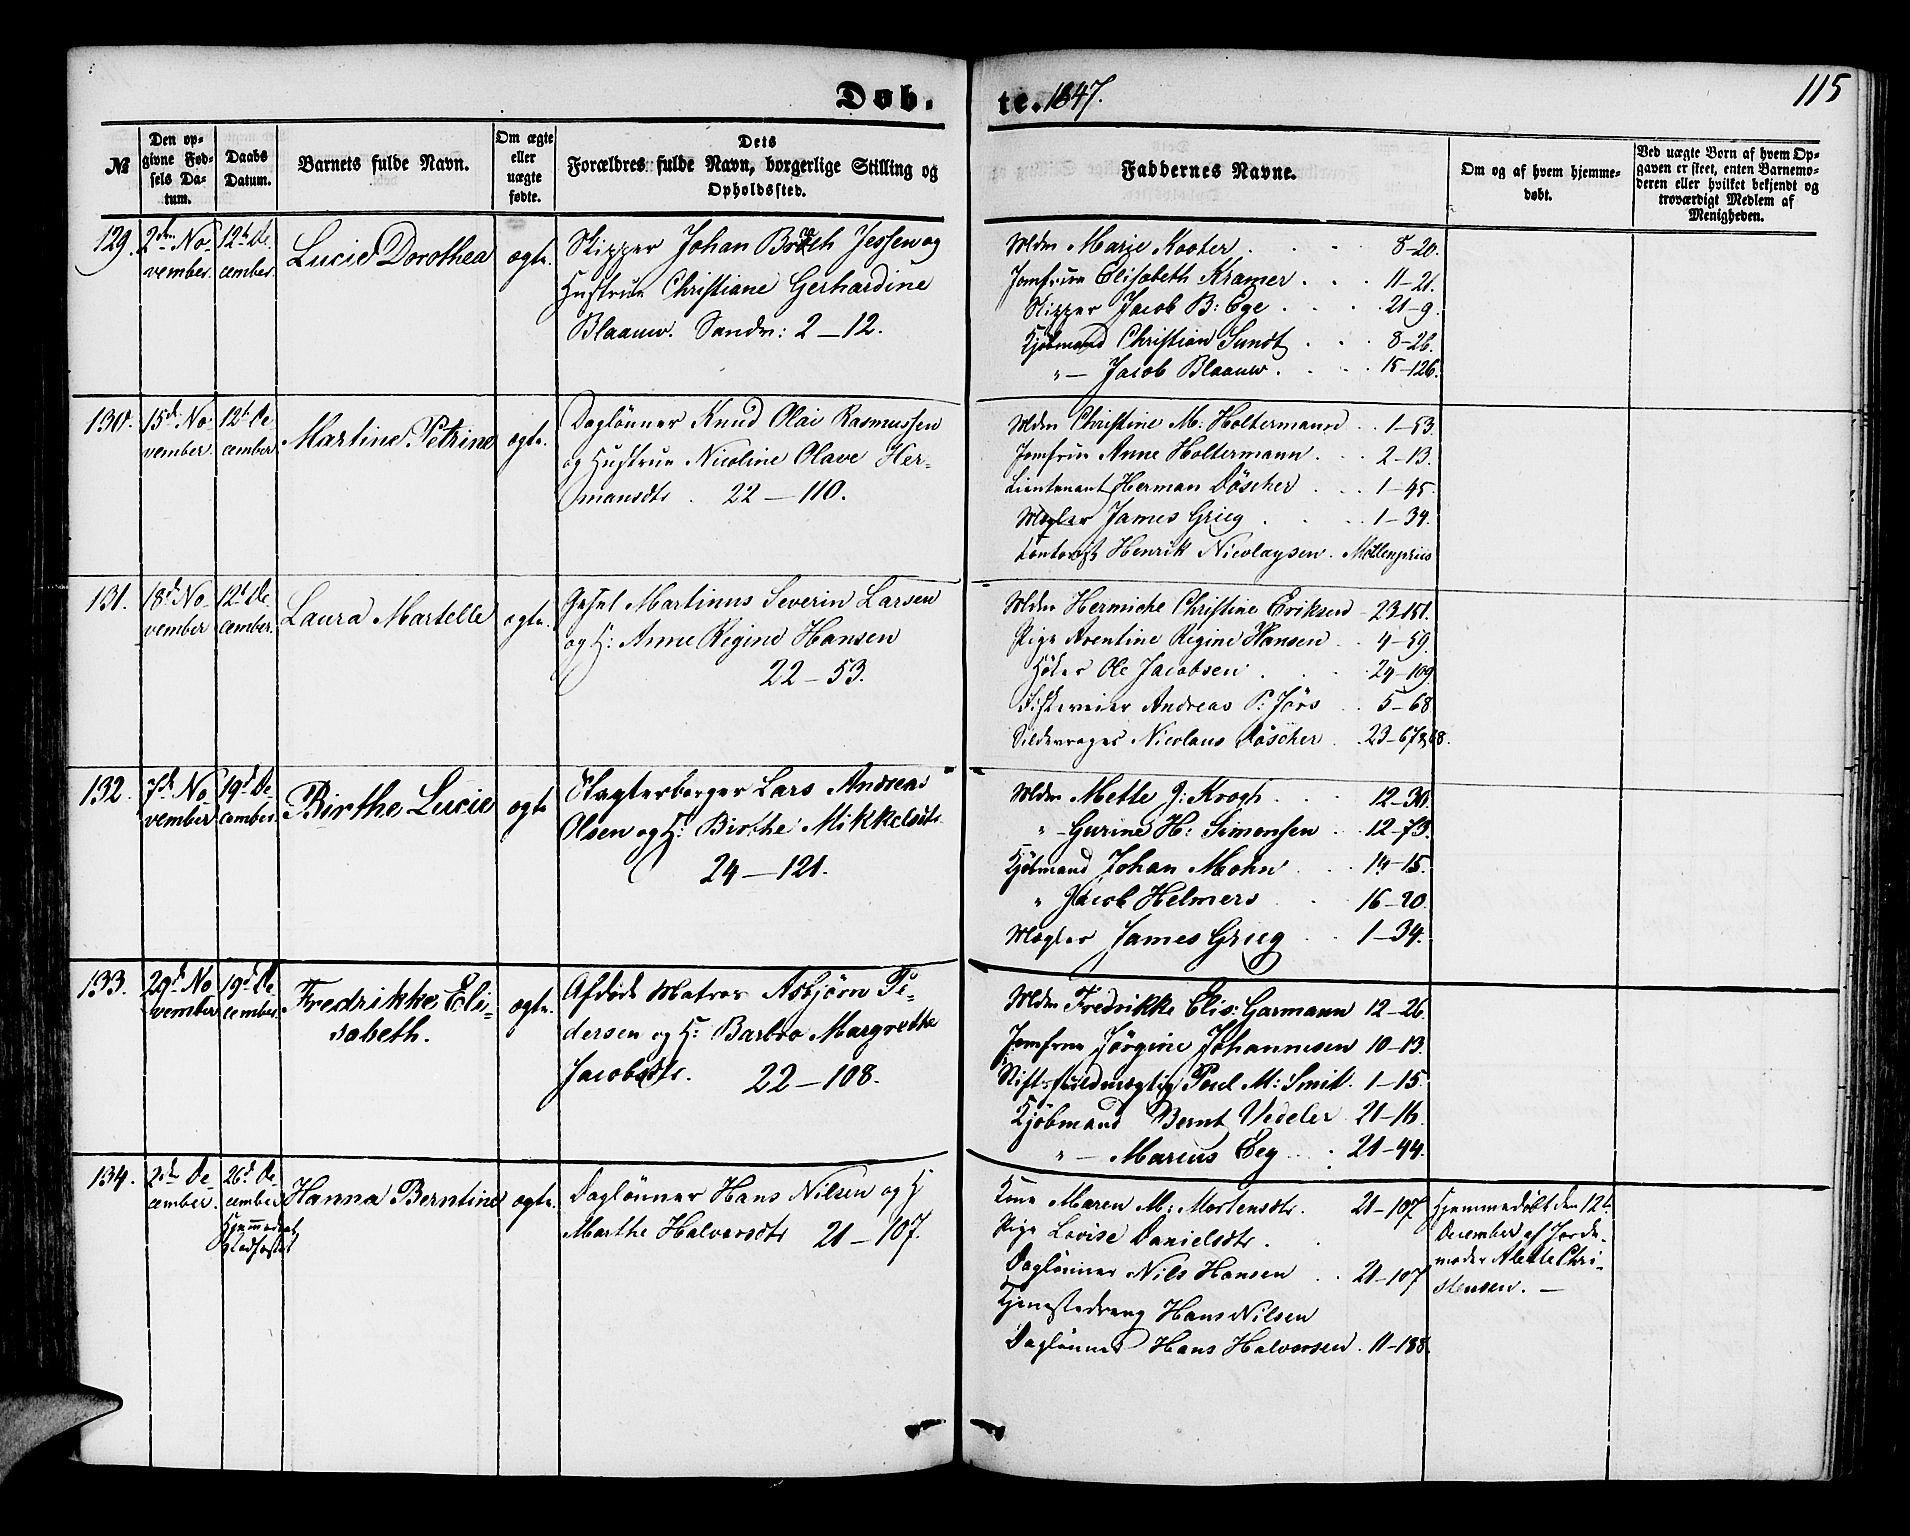 Døb. te. 1847.
115
№
Den op-
givne Fød-
sels Da-
tum.
Daabs
Datum.
Barnets fulde Navn.
Om ægte
eller
uægte
fødte.
Dets
Forældres fulde Navn, borgerlige Stilling og
Opholdssted.
Faddernes Navne.
Om og af hvem hjemme-
døbt.
Ved uægte Børn af hvem Op-
gaven er skeet, enten Barnemo-
deren eller hvilket bekjendt og
troværdigt Medlem af
Menigheden.
129.
2den No-
vember.
12te De-
cember.
Lucie Dorothea
ægte.
Skipper Johan Jessen og
Hustrue Christiane Gerhardine
Blaauw. Sandv: 2-12.
Mdm Marie Kooter 8-20.
Jomfrue Elisabeth Kramer 11-21.
Skipper Jacob B: Ege 21-9.
Kjøbmand Christian Sundt 8-26.
"- Jacob Blaauw. 15-126.
130.
15de No-
vember.
12te De-
cember
Martine Petrine
ægte.
Daglønner Knud Olai Rasmussen
og Hustrue Nicoline Olave Her-
mansdtr. 22-110.
Mdm Christine M: Holtermann 1-53.
Jomfrue Anne Holtermann 2-13.
Lieutenant Herman Döscher 1-45.
Mægler James Grieg 1-34.
Contorist Henrik Nicolaysen. Möllenpriis
131.
18de No-
vember
12te De-
cember.
Laura Martelle
ægte.
Gesel Martinus Severin Larsen
og H: Anne Regine Hansen
22-53.
Mdm Hermiche Christine Eriksen 23-151.
Pige Aventine Regine Hansen 4-59.
Höker Ole Jacobsen 24-109.
Andreas P: Jörs 5-68
Sildevrager Nicolaus Döscher 23-67&68.
132.
7de No
vember
19de De-
cember.
Birthe Lucie
ægte
Slagterborger Lars Andreas
Olsen og H: Birthe Mikkelsdtr
24-121.
Mdm Mette J: Krogh 12-30.
"- Gurine H: Simonsen 12-73.
Kjøbmand Johan Mohn 14-15.
" Jacob Helmers 16-20.
Mægler James Grieg 1-34.
133.
29de No
vember
19de De-
cember.
Fredrikke Eli-
sabeth.
ægte.
Afdöde Matros Asbjörn Pe-
dersen og H: Barbro Margrethe
Jacobsdtr. 22-108.
Mdm Fredrikke Elis: Garmann 12-26.
Jomfrue Jörgine Johannesen 10-13.
Stiftsfuldmægtig Poul M: Smit. 1-15.
Kjöbmand Bernt Vedeler 21-16.
"- Marius Eeg 21-44.
134.
2den De-
cember.
26de De-
cember
Hjemmedøbt
Stadfæstet
Hanna Berntine
ægte.
Daglønner Hans Nilsen og H
Marthe Halvorsdtr 21-107.
Kone Maren M: Mortensdtr. 21-107
Pige Lovise Danielsdtr.
Daglönner Nils Hansen 21-107
Tjenestedreng Hans Nilsen
Daglönner Hans Halvorsen 11-188.
Hjemmedøbt den 12te
December af Jorde-
moder Alette Chri-
stensen. -